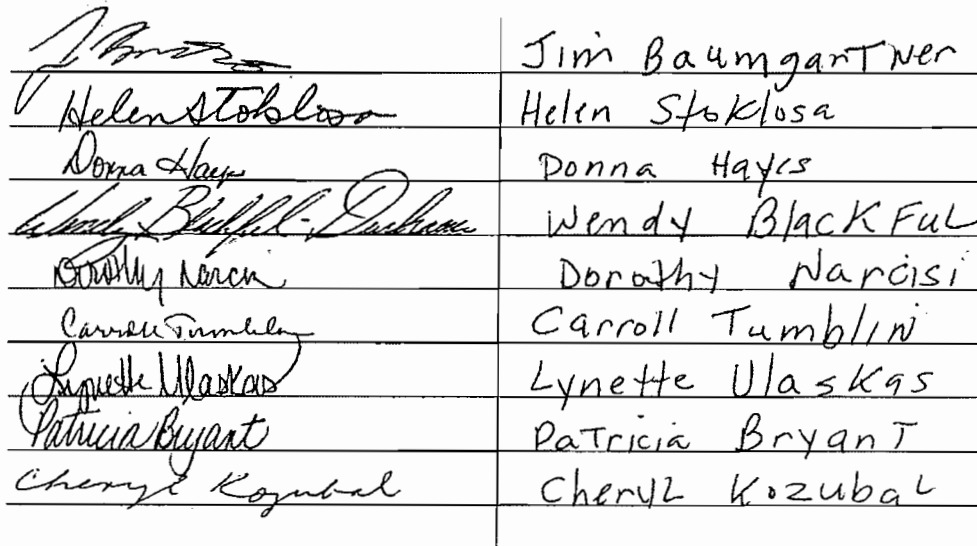 Jim BaumgarTNer
Helen Stoklosa Helen Stoklosa
Donna Hayes Donna Hayes
Wendy BlacKFuL
Dorothy Narcisi Dorathy Narcisi
Carroll Tumblin Carroll TumblIN
Lynette Ulaskas Lynette UlasKas
Patricia Bryant PaTricia BryanT
Cheryl Kozubal CherylL KozubaL